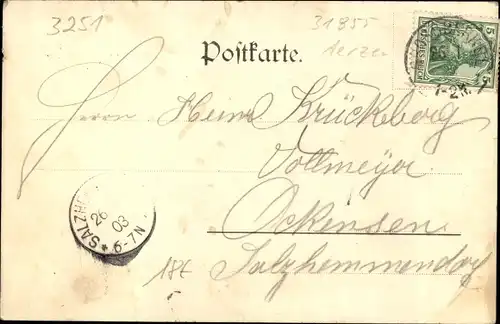 3251
31955
Aerzen
Postkarte.
5
1-2N.
Herrn Heinr. Krückeberg
Vollmeyer
Ockensen
Salzhemmendorf
SALZH
26
03
* 6-7N
18E